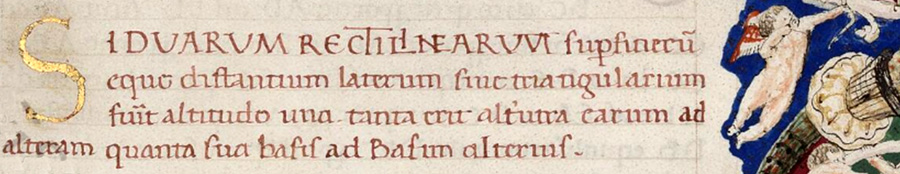 SI DUARUM RECTILINEARUM sup̱ficierū
eque distantium laterum siue triangulorum
fuīt altitudo una. tanta erit alt̓utra earum ad
alteram quanta sua basis ad Basim alterius.